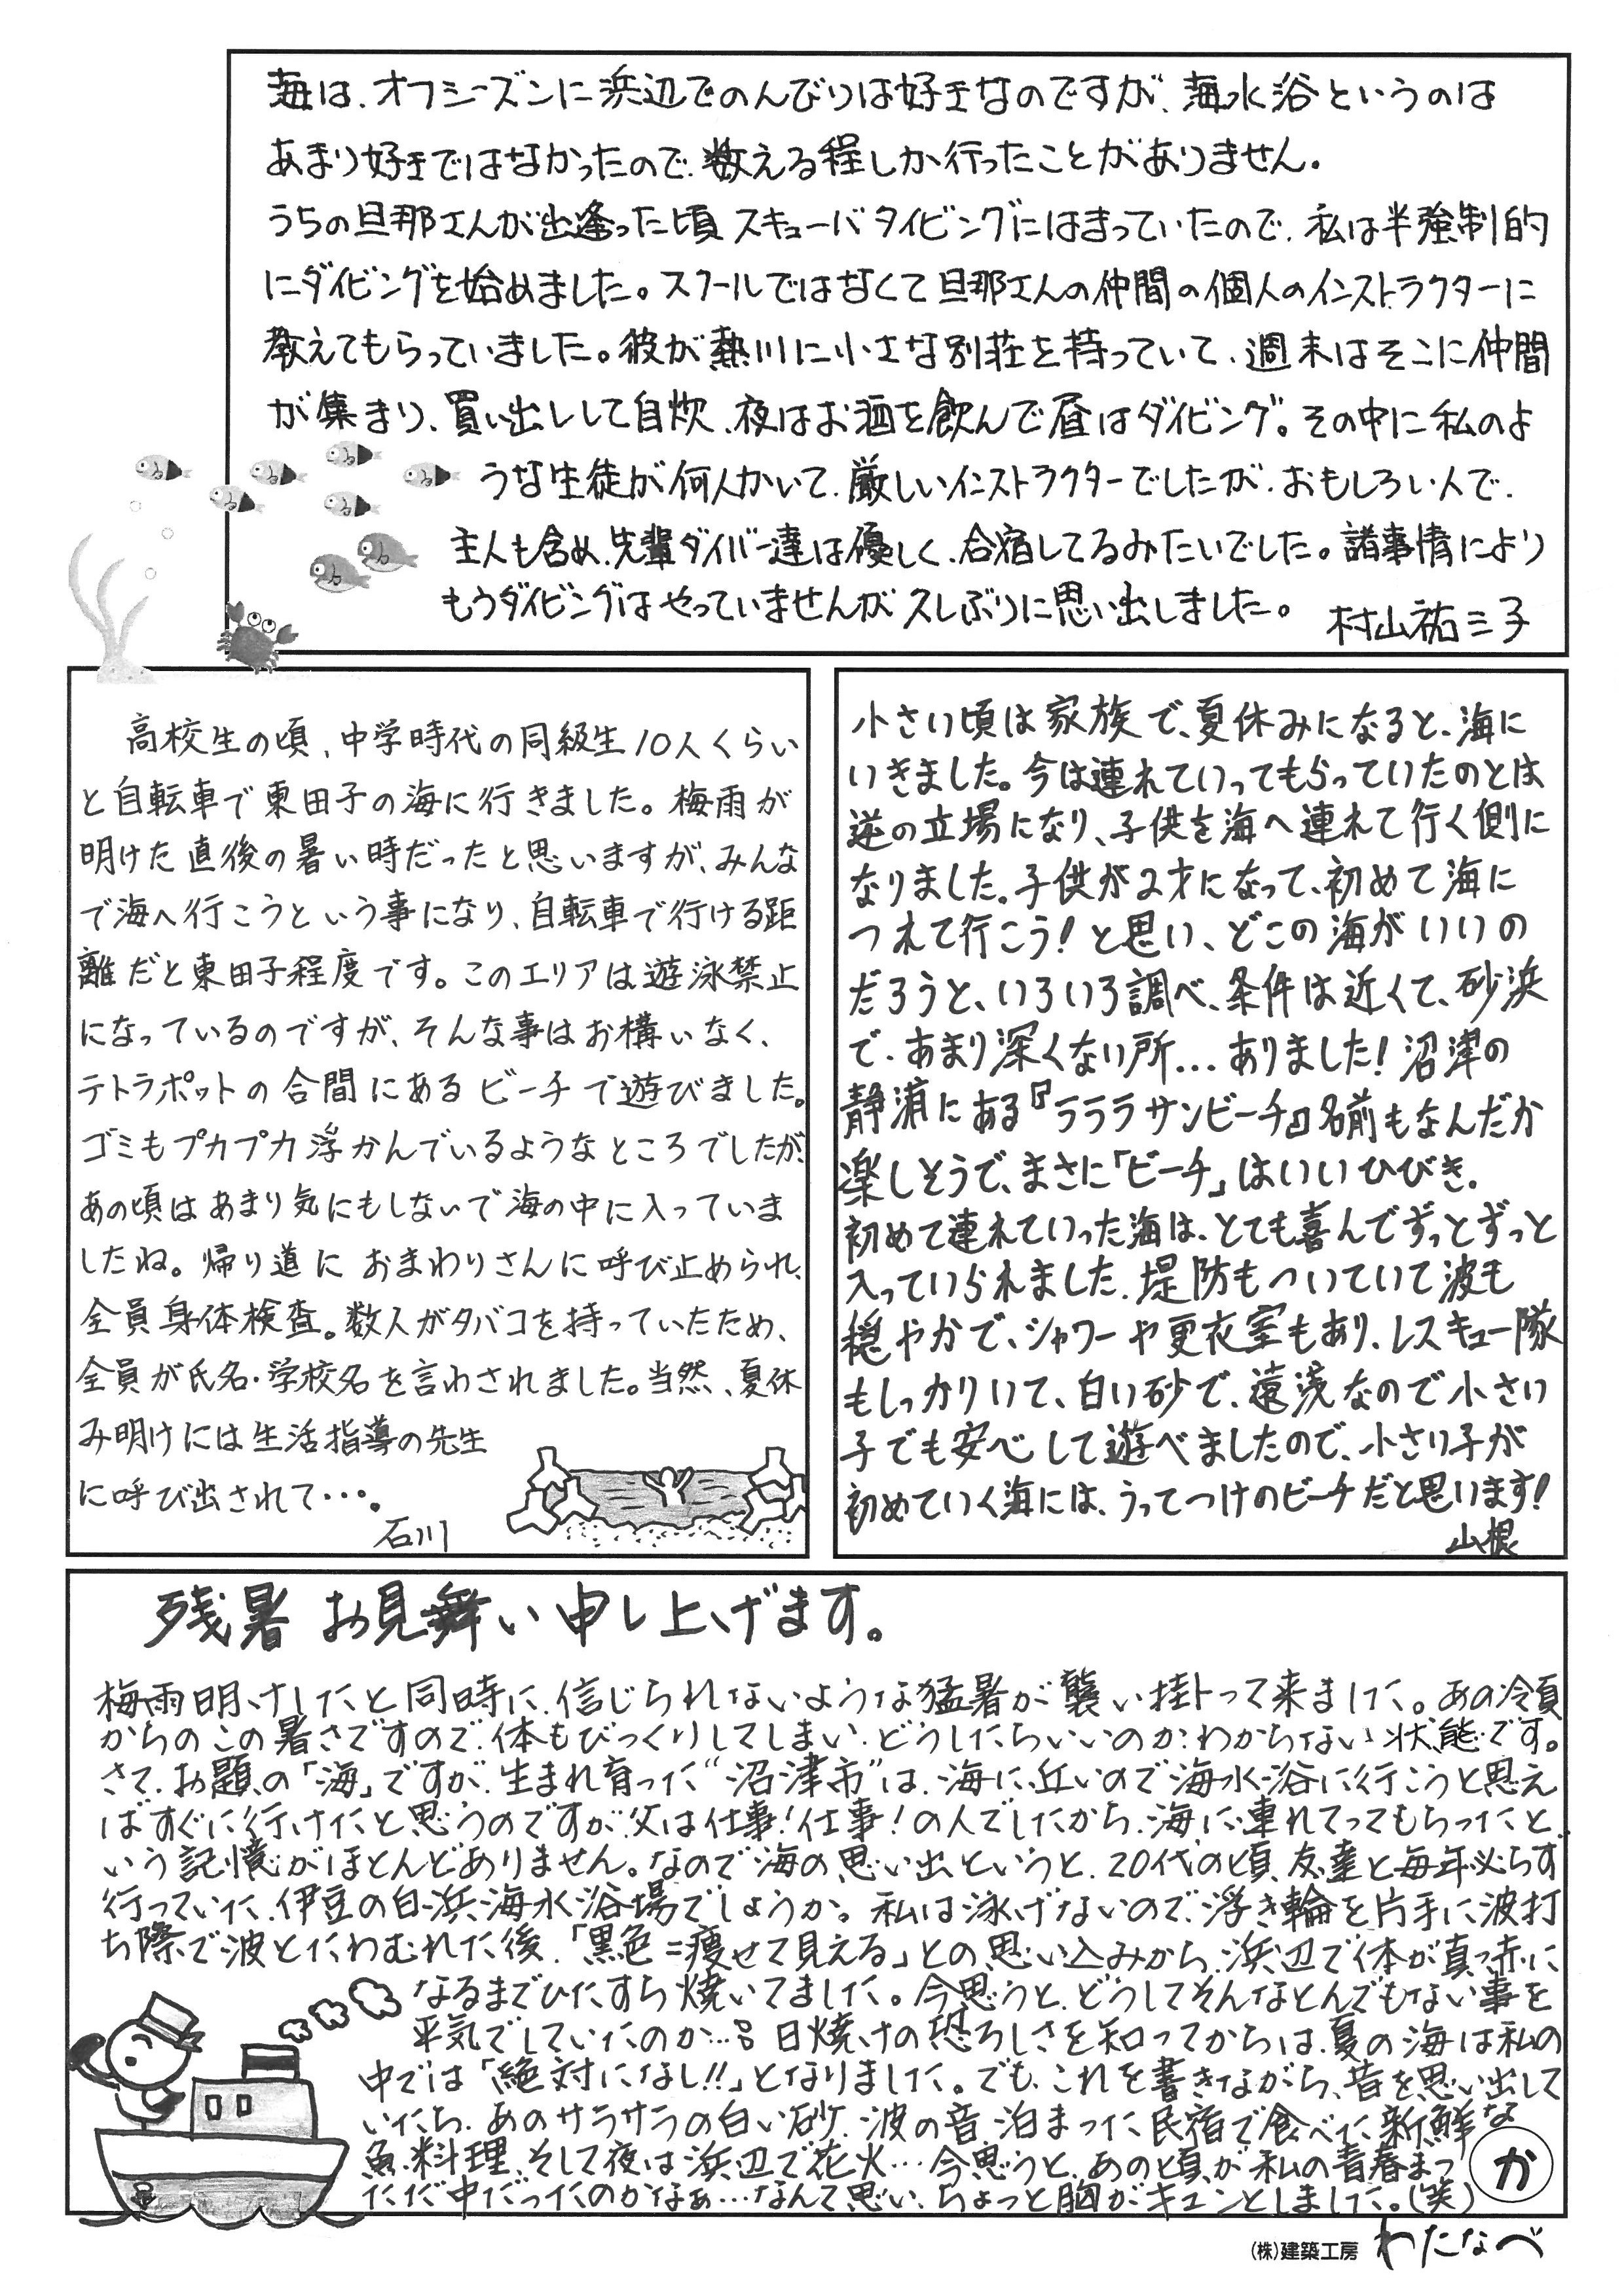 海は、オフシーズンに浜辺でのんびりは好きなのですが、海水浴というのは
あまり好きではなかったので、数える程しか行ったことがありません。
うちの旦那さんが出逢った頃スキューバダイビングにはまっていたので、私は半強制的
にダイビングを始めました。スクールではなくて旦那さんの仲間の個人のインストラクターに
教えてもらっていました。彼が熱川に小さな別荘を持っていて、週末はそこに仲間
が集まり、買い出しして自炊、夜はお酒を飲んで昼はダイビング。その中に私のよ
うな生徒が何人かいて、厳しいインストラクターでしたが、おもしろい人で、
主人も含め、先輩ダイバー達は優しく、合宿してるみたいでした。諸事情により
もうダイビングはやっていませんが久しぶりに思い出しました。
村山祐三子
高校生の頃、中学時代の同級生10人くらい
と自転車で東田子の海に行きました。梅雨が
明けた直後の暑い時だったと思いますが、みんな
で海へ行こうという事になり、自転車で行ける距
離だと東田子程度です。このエリアは遊泳禁止
になっているのですが、そんな事はお構いなく、
テトラポットの合間にあるビーチで遊びました。
ゴミもプカプカ浮かんでいるようなところでしたが、
あの頃はあまり気にもしないで海の中に入っていま
したね。帰り道におまわりさんに呼び止められ、
全員身体検査。数人がタバコを持っていたため、
全員が氏名・学校名を言わされました。当然、夏休
み明けには生活指導の先生
に呼び出されて・・・。
石川
小さい頃は家族で、夏休みになると、海に
いきました。今は連れていってもらっていたのとは
逆の立場になり、子供を海へ連れて行く側に
なりました。子供が2才になって、初めて海に
つれて行こう！と思い、どこの海がいいの
だろうと、いろいろ調べ、条件は近くて、砂浜
で、あまり深くない所…ありました！沼津の
静浦にある『ラララサンビーチ』名前もなんだか
楽しそうで、まさに「ビーチ」はいいひびき。
初めて連れていった海は、とても喜んでずっとずっと
入っていられました。堤防もついていて波も
穏やかで、シャワーや更衣室もあり、レスキュー隊
もしっかりいて、白い砂で、遠浅なので小さい
子でも安心して遊べましたので、小さい子が
初めていく海には、うってつけのビーチだと思います！
山根
残暑お見舞い申し上げます。
梅雨明けしたと同時に、信じられないような猛暑が襲い掛かって来ました。あの冷夏
からのこの暑さですので、体もびっくりしてしまい、どうしたらいいのかわからない状態です。
さて、お題の「海」ですが、生まれ育った“沼津市”は、海に近いので海水浴に行こうと思え
ばすぐに行けたと思うのですが、父は仕事！仕事！の人でしたから、海に連れてってもらったと
いう記憶がほとんどありません。なので海の思い出というと、20代の頃、友達と毎年必らず
行っていた、伊豆の白浜海水浴場でしょうか。私は泳げないので、浮き輪を片手に波打
ち際で波とたわむれた後、「黒色=痩せて見える」との思い込みから、浜辺で体が真っ赤に
なるまでひたすら焼いてました。今思うと、どうしてそんなとんでもない事を
平気でしていたのか…。日焼けの恐ろしさを知ってからは、夏の海は私の
中では「絶対になし!!」となりました。でも、これを書きながら、昔を思い出して
いたら、あのサラサラの白い砂、波の音、泊まった民宿で食べた新鮮な
魚料理、そして夜は浜辺で花火…今思うと、あの頃が私の青春まっ
ただ中だったのかなぁ…なんて思い、ちょっと胸がキュンとしました。(笑)
か
(株)建築工房 わたなべ